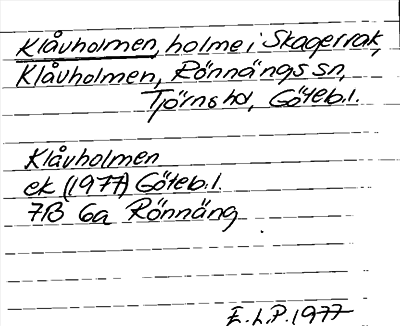 Klåvholmen, holme i Skagerrak,
Klåvholmen, Rönnängs sn,
Tjörns hd, Göteb.l.
Klåvholmen
ek (1977) Göteb.l.
7B 6a Rönnäng
E.L.P. 1977